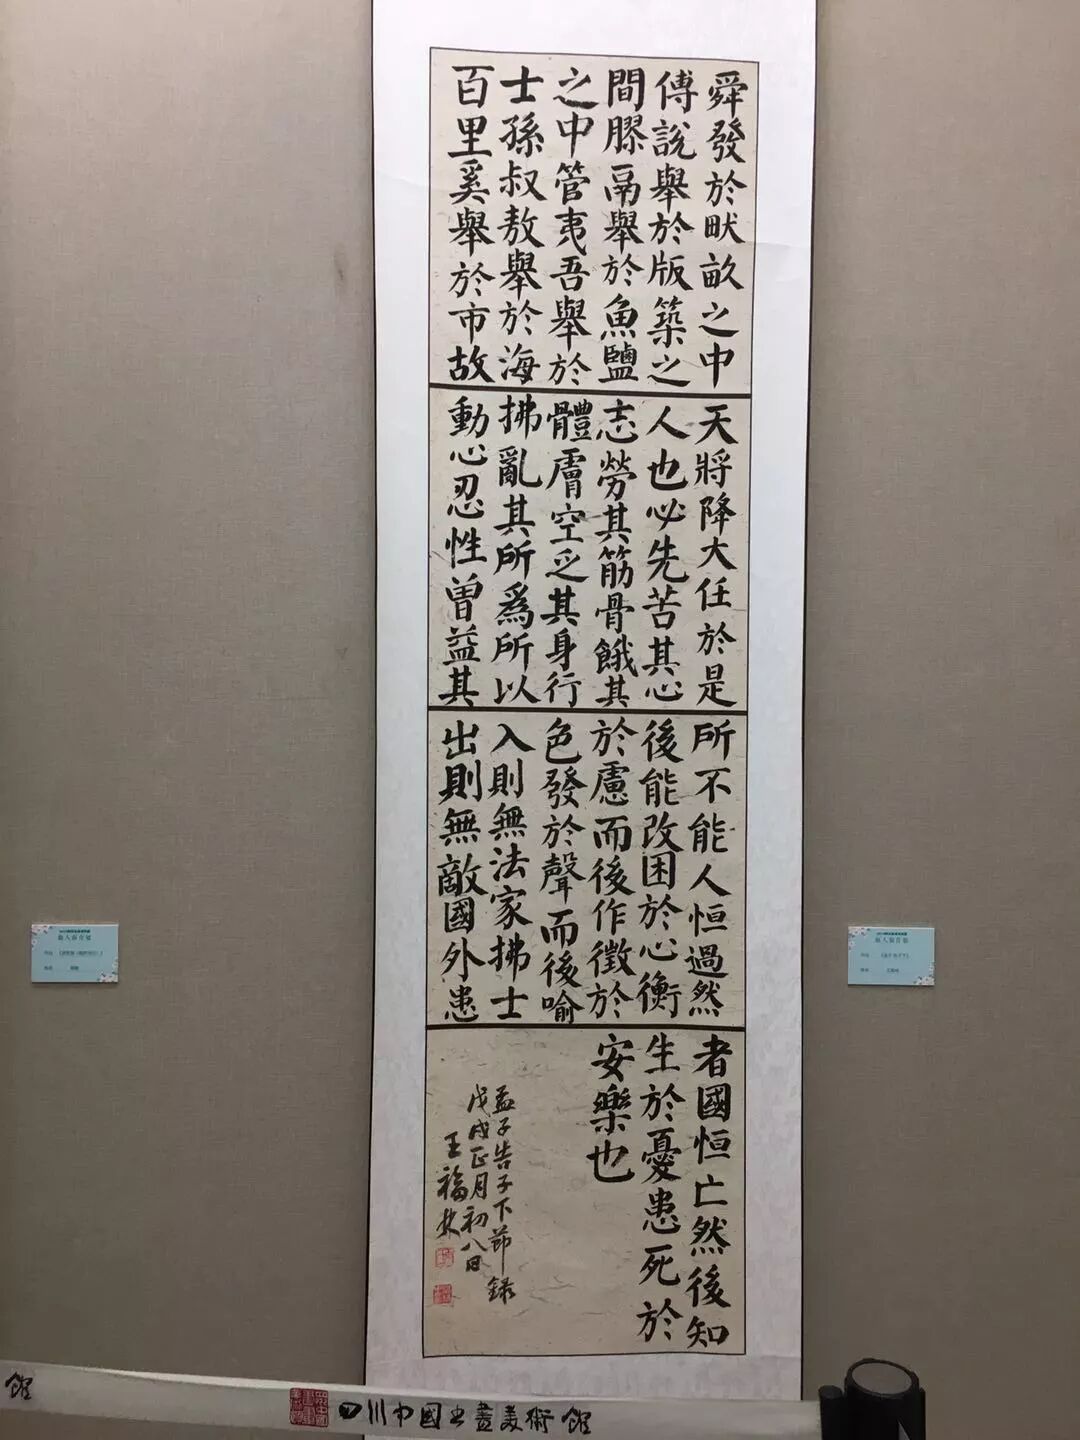 舜發於畎畝之中
傅說舉於版築之
間膠鬲舉於魚鹽
之中管夷吾舉於
士孫叔敖舉於海
百里奚舉於市故
天將降大任於是
人也必先苦其心
志勞其筋骨餓其
體膚空乏其身行
拂亂其所為所以
動心忍性曾益其
所不能人恒過然
後能改困於心衡
於慮而後作徵於
色發於聲而後喻
入則無法家拂士
出則無敵國外患
者國恒亡然後知
生於憂患死於
安樂也
孟子告子下節錄
戊戌正月初八日
王福林
館
四川中國書畫美術館